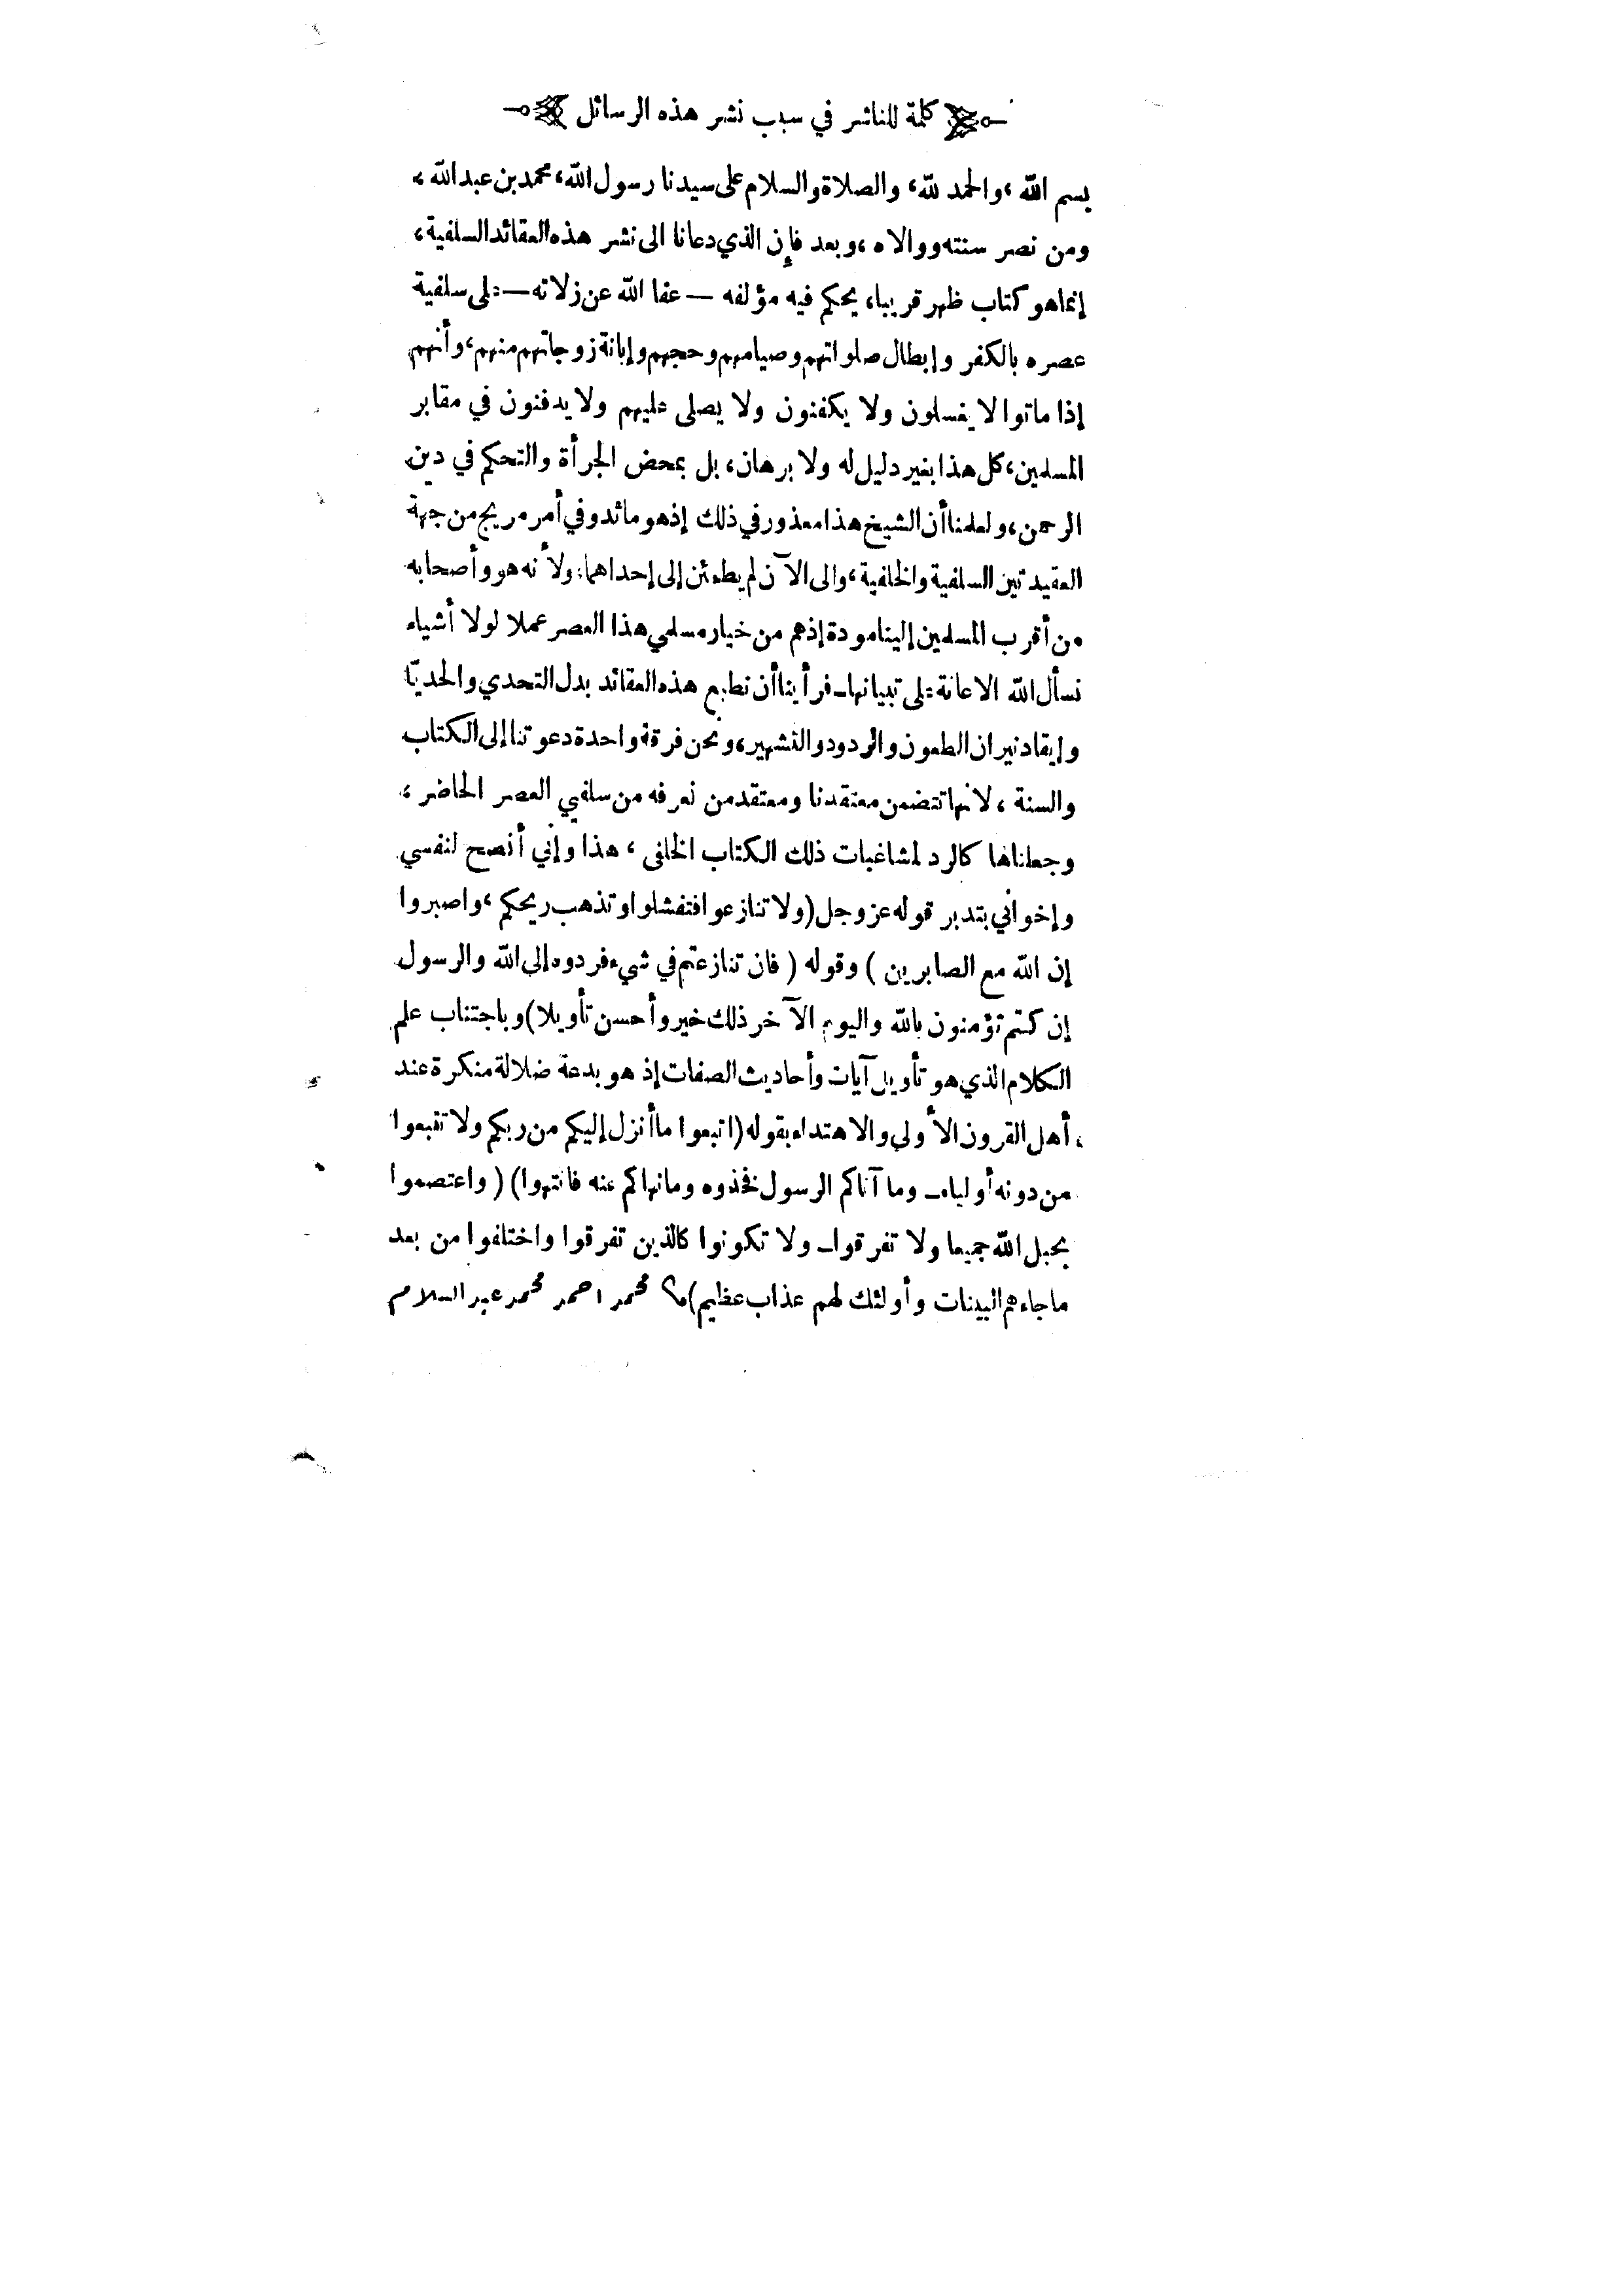 كلمة للناشر في سبب نشر هذه الرسائل
بسم الله، والحمد لله، والصلاة والسلام على سيدنا رسول الله، محمد بن عبد الله،
ومن نصر سنته ووالاه، وبعد فإن الذي دعانا الى نشر هذه العقائد السلفية،
إنما هو كتاب ظهر قريبا، يحكم فيه مؤلفه — عفا الله عن زلاته — على سلفية
عصره بالكفر وإبطال صلواتهم وصيامهم وحجهم وإبانة زوجاتهم منهم، وأنهم
إذا ماتوا لا يغسلون ولا يكفنون ولا يصلى عليهم ولا يدفنون في مقابر
المسلمين، كل هذا بغير دليل له ولا برهان، بل بمحض الجرأة والتحكم في دين
الرحمن، ولعلمنا أن الشيخ هذا معذور في ذلك إذ هو مائد وفي أمر مريج من جهة
العقيدتين السلفية والخلفية، والى الآن لم يطمئن إلى إحداهما، ولأنه هو وأصحابه
من أقرب المسلمين إلينا مودة إذ هم من خيار مسلمي هذا العصر عملا لولا أشياء
نسأل الله الاعانة على تبيانها ـ فرأينا أن نطبع هذه العقائد بدل التحدي والحديّا
وإيقاد نيران الطعون والردود والتشهير، ونحن فرقة واحدة دعوتنا إلى الكتاب
والسنة، لانها تتضمن معتقدنا ومعتقد من نعرفه من سلفيي العصر الحاضر،
وجعلناها كالرد لمشاغبات ذلك الكتاب الخلفى، هذا وإني أنصح لنفسي
وإخواني بتدبر قوله عز وجل (ولا تنازعوا فتفشلوا وتذهب ريحكم، واصبروا
إن الله مع الصابرين) وقوله (فان تنازعتم في شيء فردوه إلى الله والرسول
إن كنتم تؤمنون بالله واليوم الآخر ذلك خير وأحسن تأويلا) وباجتناب علم
الكلام الذي هو تأويل آيات وأحاديث الصفات إذ هو بدعة ضلالة منكرة عند
أهل القرون الأولى والاهتداء بقوله (اتبعوا ما أنزل إليكم من ربكم ولا تتبعوا
من دونه أولياء ـ وما آتاكم الرسول فخذوه وما نهاكم عنه فانتهوا) (واعتصموا
بحبل الله جميعا ولا تفرقوا ـ ولا تكونوا كالذين تفرقوا واختلفوا من بعد
ما جاءهم البينات وأولئك لهم عذاب عظيم) محمد احمد محمد عبد السلام